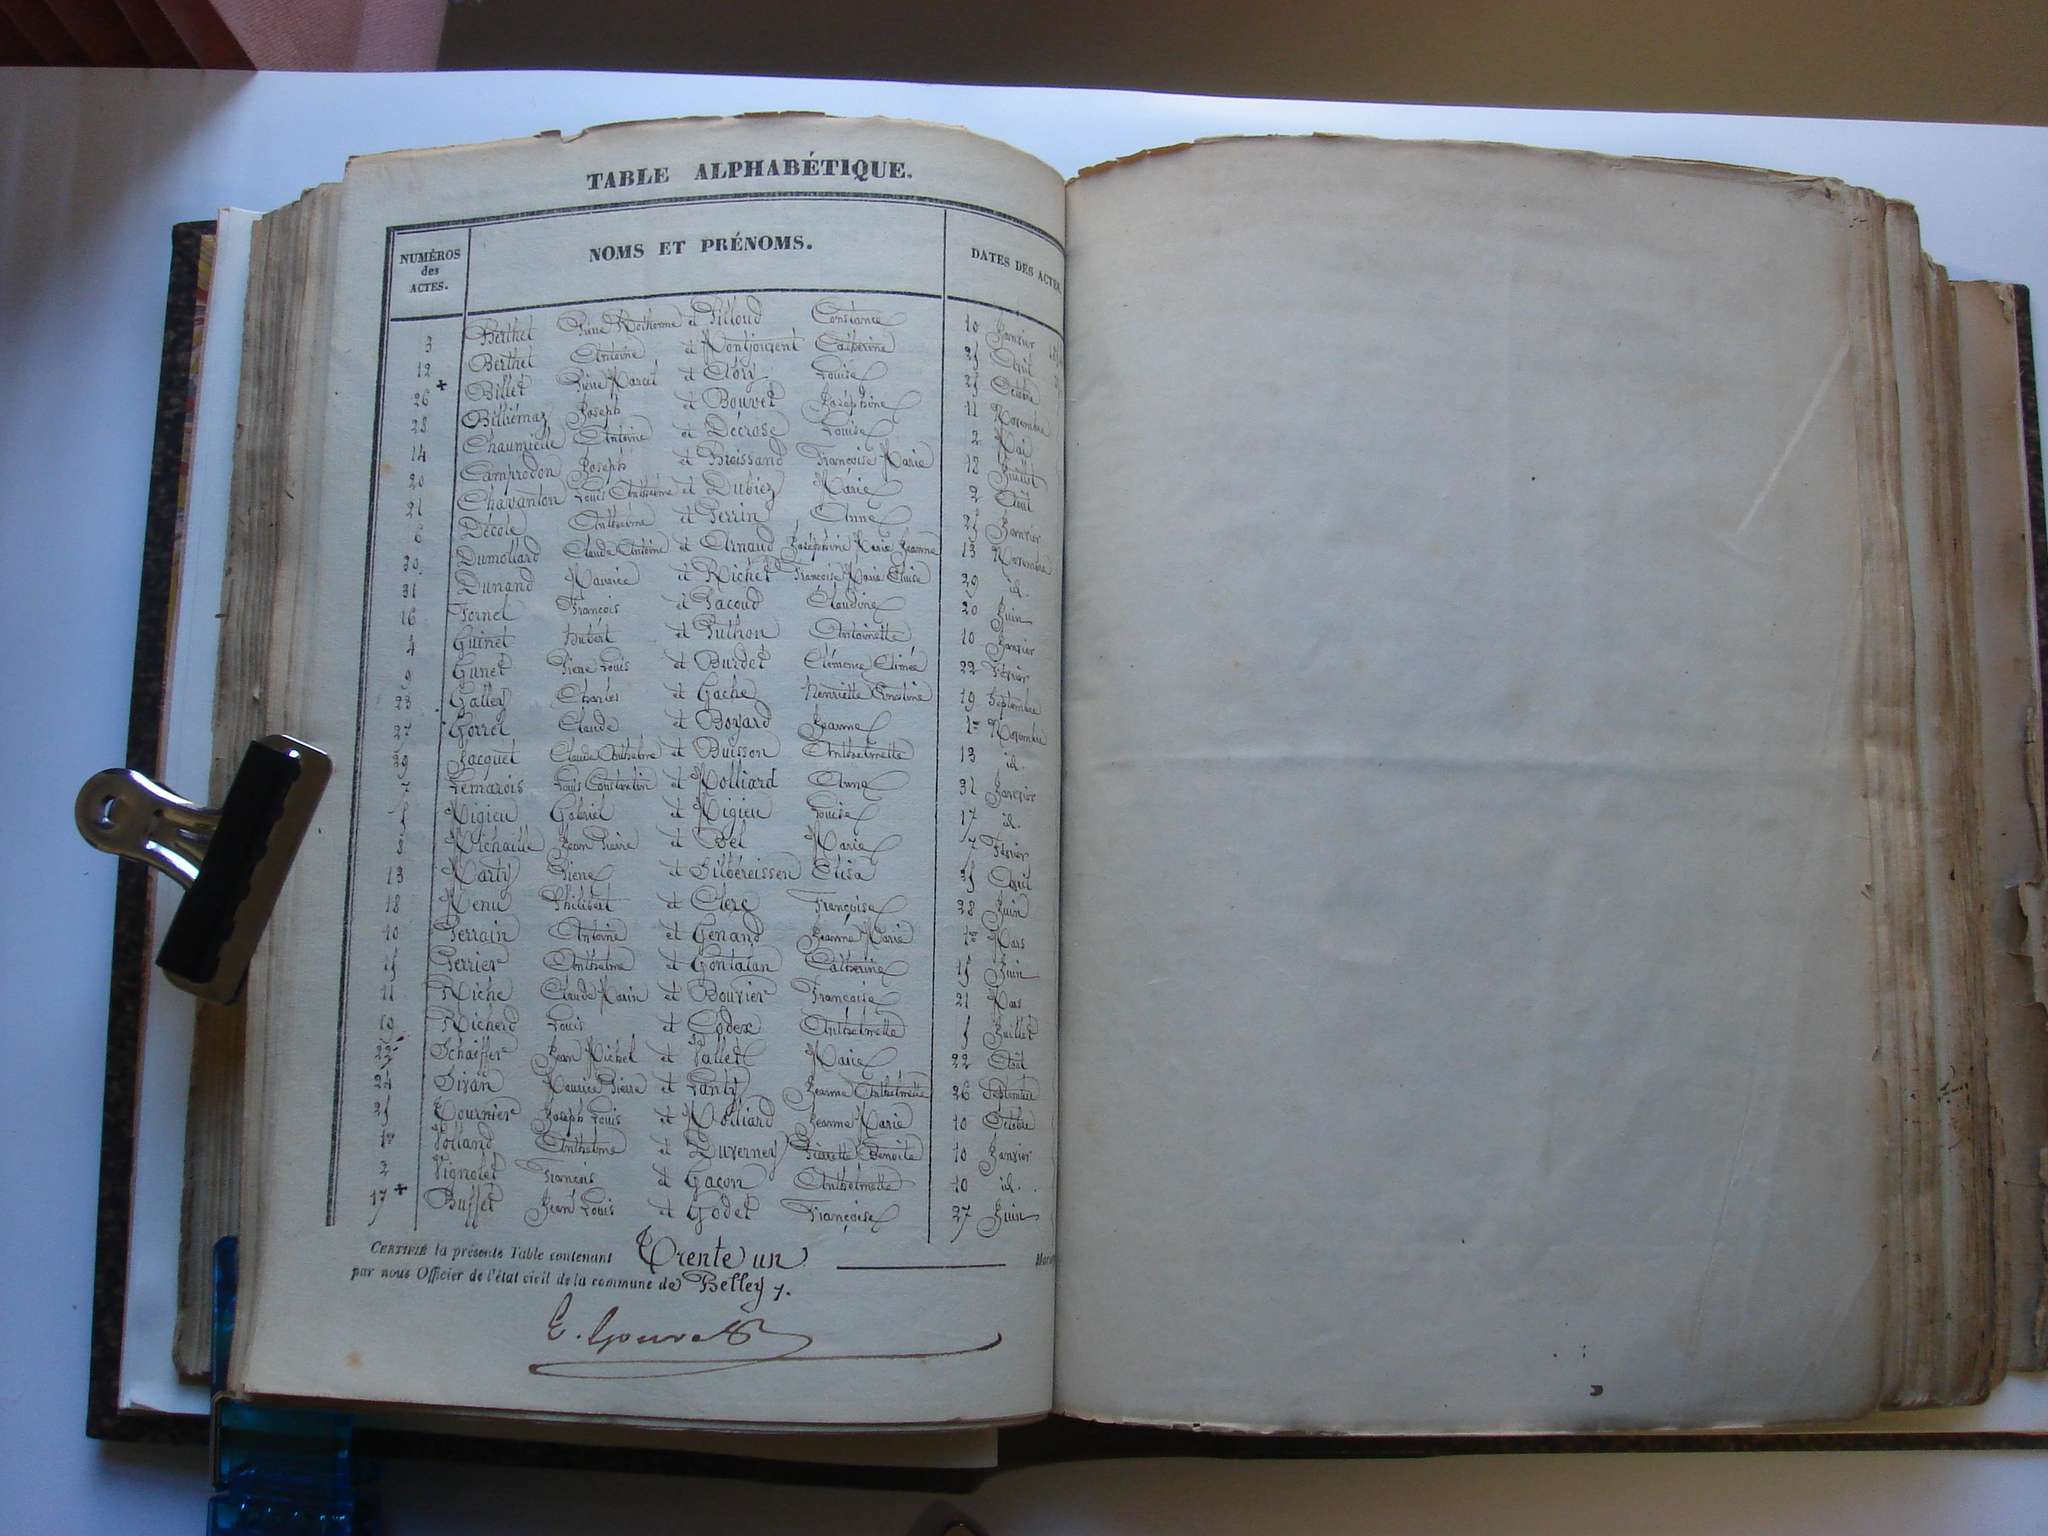 TABLE ALPHABÉTIQUE.
NUMÉROS des ACTES. NOMS ET PRÉNOMS. DATES DES ACTES.
3 Berthet Pierre Anthelme et Pilloud Constance 10 Janvier
12 Berthet Antoine et Montjouvent Catherine 25 Avril
26 + Billet Pierre Marcel et Louise 25 Octobre
28 Billiémaz Joseph et Bouvet Joséphine 11 Novembre
14 Antoine et Décrose Louise 2 Mai
20 Camprodon Joseph et Broissand Françoise Marie 12 Juillet
21 Chavanton Louis Anthelme et Dubiez Marie 2 Août
6 Décole Anthelme et Perrin Anne 25 Janvier
30 Dumollard Claude Antoine et Arnaud Joséphine Marie Jeanne 13 Novembre
31 Dunand Maurice et Richet Françoise Marie 29 id.
16 Fornet François et Pacoud Claudine 20 Juin
4 Guinet hubert et Puthon Antoinette 10 Janvier
9 Gunet Pierre Louis et Burdet Clémence 22 Février
23 Galley Charles et Gache henriette Ernestine 19 Septembre
27 Gorrel Claude et Boyard Jeanne 1er Novembre
29 Jacquet Claude Anthelme et Buisson Anthelmette 13 id.
7 Lemarois Louis Constantin et Molliard Anne 31 Janvier
5 Migieu Gabriel et Migieu Louise 17 id.
8 Michaille Jean Pierre et Bel Marie 7 Février
13 Marty Pierre et Silbéreissen Elisa 25 Avril
18 Menu Philibert et Clerc Françoise 28 Juin
10 Perrain Antoine et Genand Jeanne Marie 1er Mars
15 Perrier Anthelme et Gontalan Catherine 15 Juin
11 Riche Claude Marin et Bouvier Françoise 21 Mars
19 Richerd Louis et Codex Anthelmette 5 Juillet
22 Schaeffer Jean Michel et Vallet Marie 22 Août
24 Sivan Maurice Pierre et Lanty Jeanne Anthelmette 26 Septembre
25 Tournier Joseph Louis et Molliard Jeanne Marie 10 Octobre
1er Volland Anthelme et Duverney Pierrette Benoite 10 Janvier
2 Vignolet François et Gacon Anthelmette 10 id.
17 + Buffet Jean Louis et Godet Françoise 27 Juin
CERTIFIÉ la présente Table contenant Trente un
par nous Officier de l'état civil de la commune de Belley